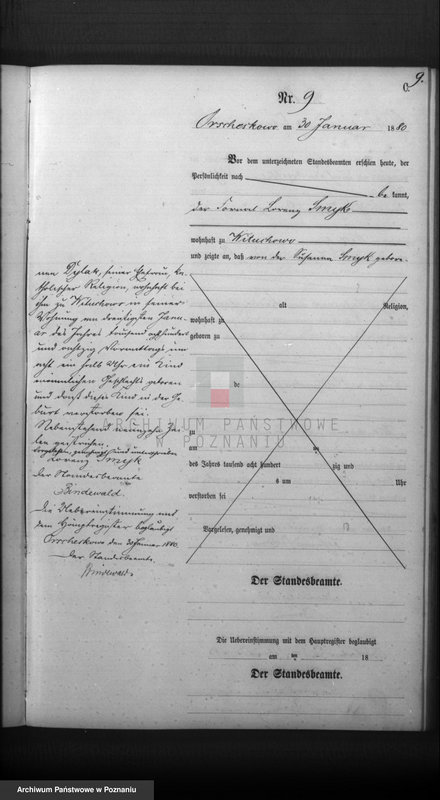 9.
C.
Nr. 9
Orscheskowo am 30 Januar 1880
Vor dem unterzeichneten Standesbeamten erschien heute, der
Persönlichkeit nach
bekannt,
der Fornal Lorenz Smyk
wohnhaft zu Wituchowo
und zeigte an, daß von der Susanna Smyk gebore-
nen Dylak, seiner Ehefrau, ka-
tholischer Religion, wohnhaft bei
ihm zu Wituchowo in seiner
Wohnung am dreißigsten Janu-
ar des Jahres tausend achthundert
und achtzig Vormittags um
acht ein halb Uhr ein Kind
männlichen Geschlechts geboren
und daß dieses Kind in der Ge-
burt verstorben sei.
Nebenstehend neunzehn Zei-
len gestrichen.
Vorgelesen, genehmigt und unterschrieben
Lorenz Smyk
Der Standesbeamte
Bindewald.
Die Uebereinstimmung mit
dem Hauptregister beglaubigt
Orscheskowo den 30 Januar 1880.
Der Standesbeamte.
Bindewald.
alt Religion,
wohnhaft zu
geboren zu
de
zu
am ten
des Jahres tausend acht hundert zig und
s um Uhr
verstorben sei
Vorgelesen, genehmigt und
Der Standesbeamte.
Die Uebereinstimmung mit dem Hauptregister beglaubigt
am ten 18
Der Standesbeamte.
ARCHIWUM PAŃSTWOWE
W POZNANIU
Archiwum Państwowe w Poznaniu